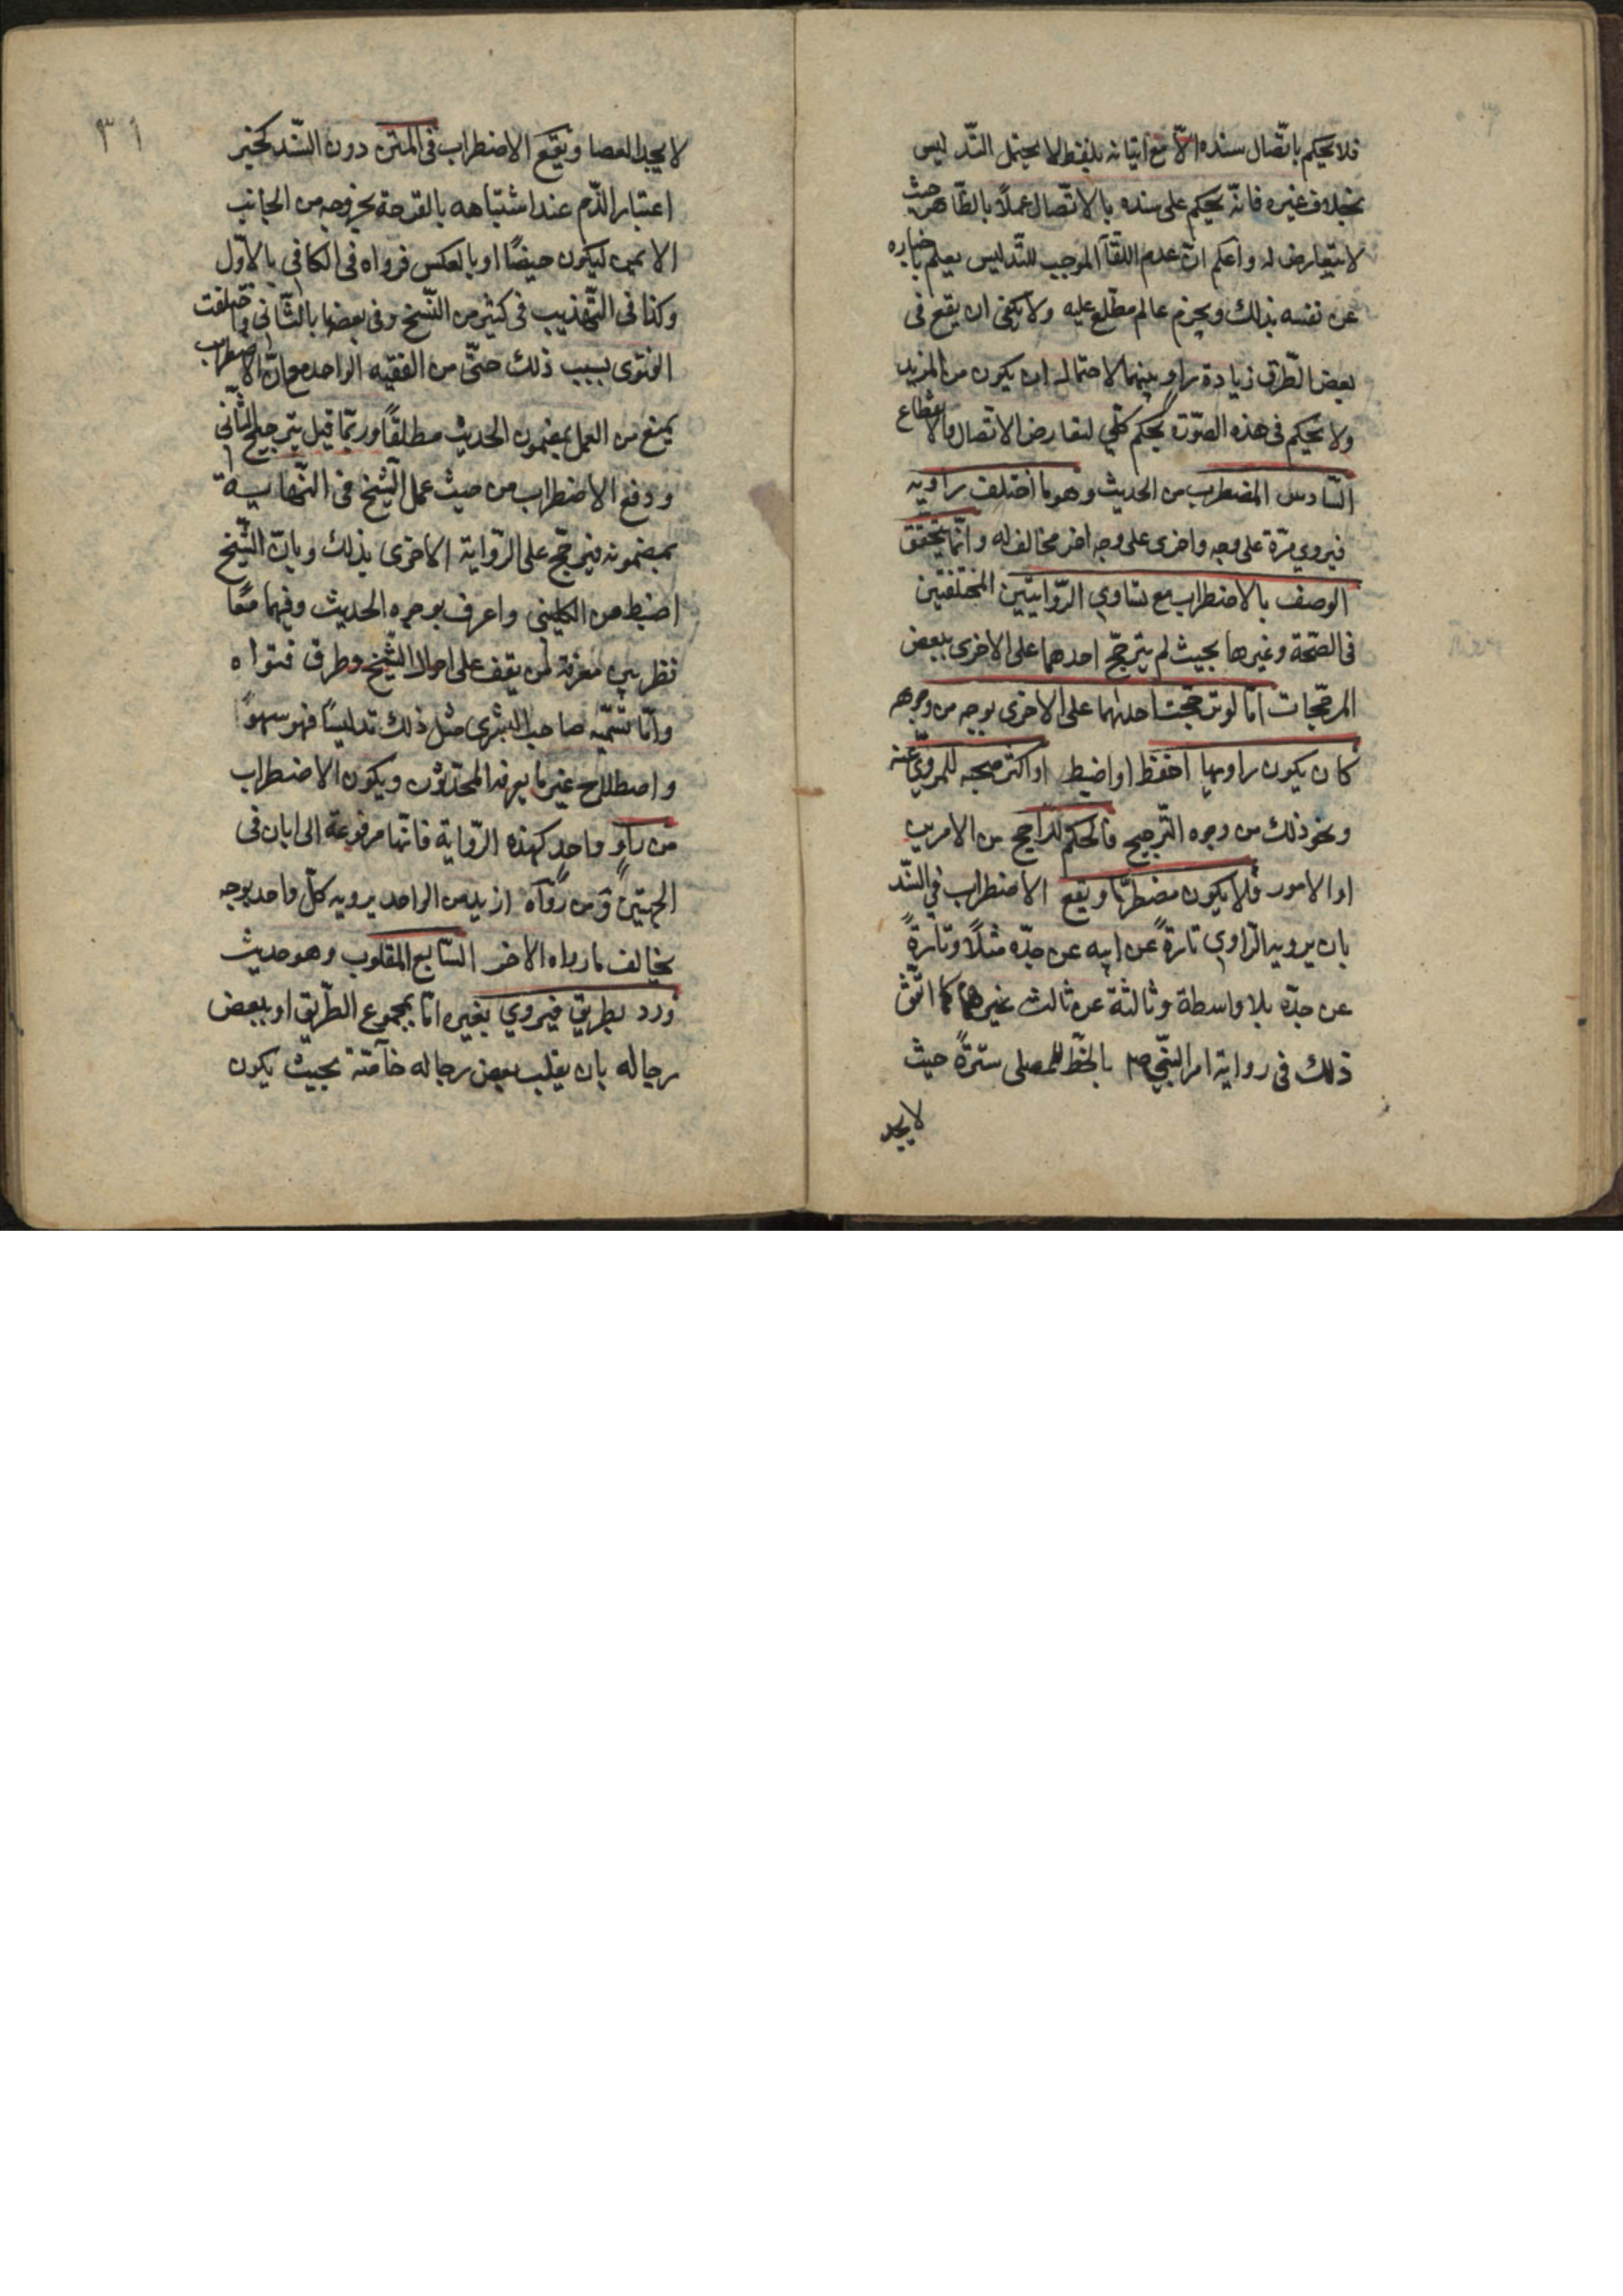 فلا يحكم باتّصال سنده الّا مع اتيانه بلفظ لا يحتمل التّدليس
بخلاف غيره فانّه يحكم على سنده بالاتّصال عملاً بالظّاهر حيث
لا يتعارض له واعلم انّ عدم اللّقآ الموجب للتّدليس يعلم باخباره
عن نفسه بذلك وبجزم عالم مطّلع عليه ولا يكفى ان يقع فى
بعض الطّرق زيادة راو بينهما لاحتمال ان يكون من المزيد
ولا يحكم فى هذه الصّورة بحكم كلّي لتعارض الاتّصال والانقطاع
السّادس المضطرب من الحديث وهو ما اختلف راويه
فيروي مرّة على وجه واخرى على وجه اخر مخالف له وانّما يتحقّق
الوصف بالاضطراب مع تساوي الرّوايتين المختلفتين
فى الصّحة وغيرها بحيث لم يترجّح احدهما على الاخرى ببعض
المرجّحات امّا لو ترجّحت احدٰهما على الاخرى بوجه من وجوهه
كان يكون راويها احفظ او اضبط او اكثر صحبه للمرويّ عنه
ونحو ذلك من وجوه التّرجيح فالحكم للرّاجح من الامرين
او الامور فلا يكون مضطربًا ويقع الاضطراب في السّند
بان يرويه الرّاوي تارةً عن ابيه عن جدّه مثلاً وتارةً
عن جدّه بلا واسطة وثالثة عن ثالث غيرهما كما اتّفق
ذلك فى رواية امر النّبيّ ص بالخطّ للمصلى سترةً حيث
لا يجد
٣١
لا يجد العصا ويقع الاضطراب فى المتن دون السّند كخبر
اعتبار الدّم عند اشتباهه بالقرحة بخروجه من الجانب
الايمن ليكون حيضًا او بالعكس فرواه فى الكافي بالاوّل
وكذا فى التّهذيب فى كثير من النّسخ وفى بعضها بالثّاني واختلفت
الفتوى بسبب ذلك حتّى من الفقيه الواحد مع انّ الاضطراب
يمنع من العمل بمضمون الحديث مطلقًا وربّما قيل بترجيح الثّانى
ودفع الاضطراب من حيث عمل الشّيخ فى النّهاية
بمضمونه فيرجّح على الرّواية الاخرى بذلك وبانّ الشّيخ
اضبط من الكلينى واعرف بوجوه الحديث وفيهما معًا
نظر بيّن معرفة لمن يقف على احوال الشّيخ وطرق فتواه
وامّا تسميّه صاحب البشرى مثل ذلك تدليسًا فهو سهوٌ
واصطلاح غير ما يعرفه المحدّثون ويكون الاضطراب
من راوٍ واحدٍ كهذه الرّواية فانّها مرفوعة الى ابان فى
الجهتين ومن رواة ازيد من الواحد يرويه كلّ واحد بوجه
يخالف ما رواه الاخر السّابع المقلوب وهو حديث
ورد بطريق فيروي بغيره امّا بمجموع الطّريق او ببعض
رجاله بان يقلب بعض رجاله خآصّة بحيث يكون